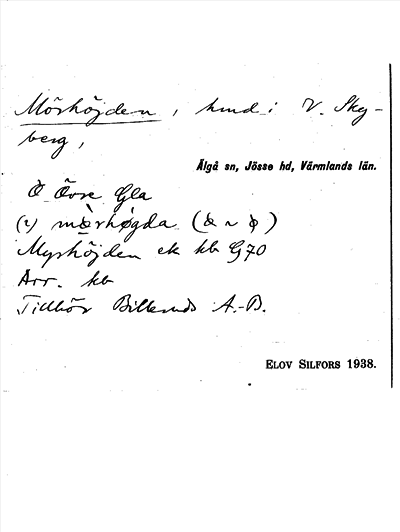 Mörhöjden, hmd i V. Sky-
berg,
Älgå sn, Jösse hd, Värmlands län.
Ö Övre Gla
mö̀rhøgda
Myrhöjden ek kb G70
Arr. kb
Tillhör Billeruds A.-B.
ELOV SILFORS 1938.